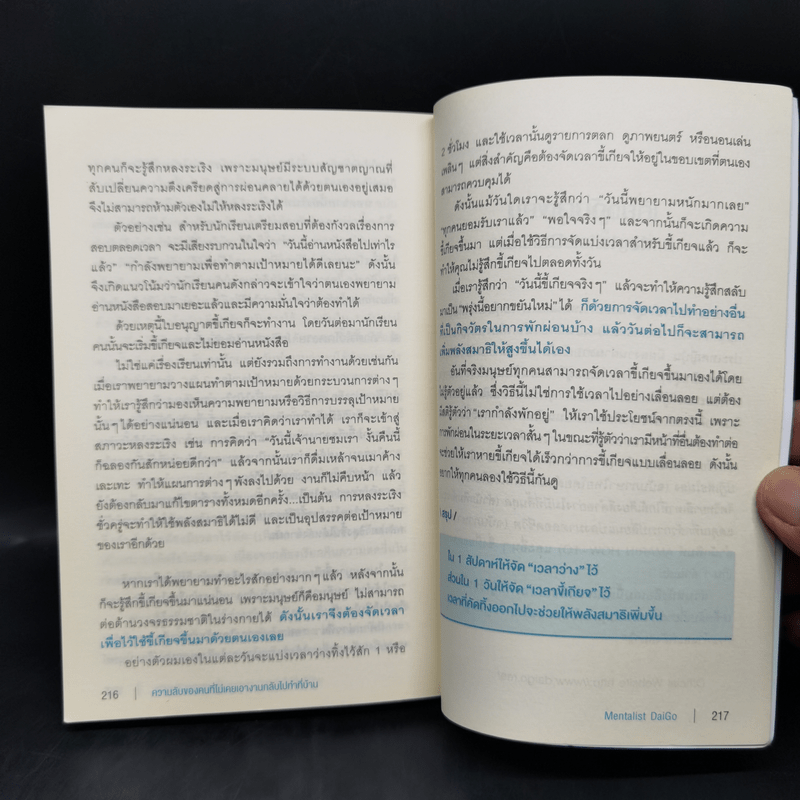 ทุกคนก็จะรู้สึกหลงระเริง เพราะมนุษย์มีระบบสัญชาตญาณที่
สับเปลี่ยนความตึงเครียดสู่การผ่อนคลายได้ด้วยตนเองอยู่เสมอ
จึงไม่สามารถห้ามตัวเองไม่ให้หลงระเริงได้
ตัวอย่างเช่น สำหรับนักเรียนเตรียมสอบที่ต้องกังวลเรื่องการ
สอบตลอดเวลา จะมีเสียงรบกวนในใจว่า “วันนี้อ่านหนังสือไปเท่าไร
แล้ว” “กำลังพยายามเพื่อทำตามเป้าหมายได้ดีเลยนะ” ดังนั้น
จึงเกิดแนวโน้มว่านักเรียนคนดังกล่าวจะเข้าใจว่าตนเองพยายาม
อ่านหนังสือสอบมาเยอะแล้วและมีความมั่นใจว่าต้องทำได้
ด้วยเหตุนี้ใบอนุญาตขี้เกียจก็จะทำงาน โดยวันต่อมานักเรียน
คนนั้นจะเริ่มขี้เกียจและไม่ยอมอ่านหนังสือ
ไม่ใช่แค่เรื่องเรียนเท่านั้น แต่ยังรวมถึงการทำงานด้วยเช่นกัน
เมื่อเราพยายามวางแผนทำตามเป้าหมายด้วยกระบวนการต่างๆ
ทำให้เรารู้สึกว่ามองเห็นความพยายามหรือวิธีการบรรลุเป้าหมาย
นั้นๆ ได้อย่างแน่นอน และเมื่อเราคิดว่าเราทำได้ เราก็จะเข้าสู่
สภาวะหลงระเริง เช่น การคิดว่า “วันนี้เจ้านายชมเรา งั้นคืนนี้
ก็ฉลองกันสักหน่อยดีกว่า” แล้วจากนั้นเราก็ดื่มเหล้าจนเมาค้าง
เละเทะ ทำให้แผนการต่างๆ พังลงไปด้วย งานก็ไม่คืบหน้า แล้ว
ยังต้องกลับมาแก้ไขตารางทั้งหมดอีกครั้ง...เป็นต้น การหลงระเริง
ชั่วครู่จะทำให้ใช้พลังสมาธิได้ไม่ดี และเป็นอุปสรรคต่อเป้าหมาย
ของเราอีกด้วย
หากเราได้พยายามทำอะไรสักอย่างมากๆ แล้ว หลังจากนั้น
ก็จะรู้สึกขี้เกียจขึ้นมาแน่นอน เพราะมนุษย์ก็คือมนุษย์ ไม่สามารถ
ต่อต้านวงจรธรรมชาติในร่างกายได้ ดังนั้นเราจึงต้องจัดเวลา
เพื่อไว้ใช้ขี้เกียจขึ้นมาด้วยตนเองเลย
อย่างตัวผมเองในแต่ละวันจะแบ่งเวลาว่างทิ้งไว้สัก 1 หรือ
216 | ความลับของคนที่ไม่เคยเอางานกลับไปทำที่บ้าน
2 ชั่วโมง และใช้เวลานั้นดูรายการตลก ดูภาพยนตร์ หรือนอนเล่น
เพลินๆ แต่สิ่งสำคัญคือต้องจัดเวลาขี้เกียจให้อยู่ในขอบเขตที่ตนเอง
สามารถควบคุมได้
ดังนั้นแม้วันใดเราจะรู้สึกว่า “วันนี้พยายามหนักมากเลย”
“ทุกคนยอมรับเราแล้ว” “พอใจจริงๆ” และจากนั้นก็จะเกิดความ
ขี้เกียจขึ้นมา แต่เมื่อใช้วิธีการจัดแบ่งเวลาสำหรับขี้เกียจแล้ว ก็จะ
ทำให้คุณไม่รู้สึกขี้เกียจไปตลอดทั้งวัน
เมื่อเรารู้สึกว่า “วันนี้ขี้เกียจจริงๆ” แล้วจะทำให้ความรู้สึกสลับ
มาเป็น “พรุ่งนี้อยากขยันใหม่” ได้ ก็ด้วยการจัดเวลาไปทำอย่างอื่น
ที่เป็นกิจวัตรในการพักผ่อนบ้าง แล้ววันต่อไปก็จะสามารถ
เพิ่มพลังสมาธิให้สูงขึ้นได้เอง
อันที่จริงมนุษย์ทุกคนสามารถจัดเวลาขี้เกียจขึ้นมาเองได้โดย
ไม่รู้ตัวอยู่แล้ว ซึ่งวิธีนี้ไม่ใช่การใช้เวลาไปอย่างเลื่อนลอย แต่ต้อง
รู้ตัวว่า “เรากำลังพักอยู่” ให้เราใช้ประโยชน์จากตรงนี้ เพราะ
การพักผ่อนในระยะเวลาสั้นๆ ในขณะที่รู้ตัวว่าเรามีหน้าที่อื่นต้องทำต่อ
จะช่วยให้เราหายขี้เกียจได้เร็วกว่าการขี้เกียจแบบเลื่อนลอย ดังนั้น
อยากให้ทุกคนลองใช้วิธีนี้กันดู
สรุป /
ใน 1 สัปดาห์ให้จัด “เวลาว่าง” ไว้
ส่วนใน 1 วันให้จัด “เวลาขี้เกียจ” ไว้
เวลาที่คัดทิ้งออกไปจะช่วยให้พลังสมาธิเพิ่มขึ้น
Mentalist DaiGo | 217